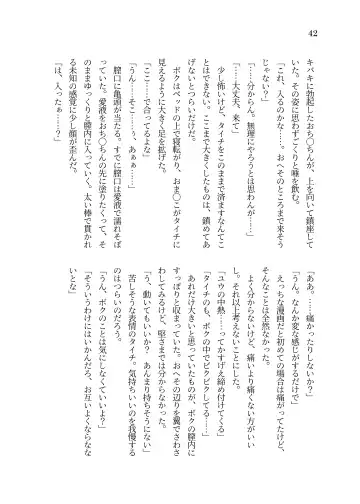 42
キバキに勃起したおち〇ちんが、上を向いて鎮座して
いた。その姿に思わずごくりと唾を飲む。
「これ、入るのかな……。おへそのところまで来そう
じゃない？」
「……分からん。無理にやろうとは思わんが……」
「……大丈夫、来て」
少し怖いけど、タイチをこのまま済ますなんてこ
とはできない。ここまで大きくしたものは、鎮めてあ
げないとつらいだけだ。
ボクはベッドの上で寝転がり、おま〇こがタイチに
見えるように大きく足を拡げた。
「ここ……で合ってるよな」
「うん……そこ……ぅ、あぁぁ……」
膣口に亀頭が当たる。すでに膣口は愛液で濡れそぼ
っていた。愛液をおち〇ちんの先に塗りたくって、そ
のままゆっくりと膣内に入っていく。太い棒で貫かれ
る未知の感覚に少し顔が歪んだ。
「は、入ったぁ……？」
「ああ。……痛かったりしないか？」
「うん。なんか変な感じがするだけで」
えっちな漫画だと初めての場合は痛がってたけど、
そんなことは全然なかった。
よく分からないけど、痛いより痛くない方がいい
し。それ以上考えないことにした。
「ユウの中熱……ってかすげえ締め付けてくる」
「タイチのも、ボクの中でビクビクしてる……」
あれだけ大きいと思っていたものが、ボクの膣内に
すっぽりと収まっていた。おへその辺りを翼でさわさ
わしてみるけど、堅さまでは分からなかった。
「う、動いてもいいか？　あんまり持ちそうにない」
苦しそうな表情のタイチ。気持ちいいのを我慢する
のはつらいのだろう。
「うん、ボクのことは気にしなくていいよ？」
「そういうわけにはいかんだろ、お互いよくならなな
いとな」